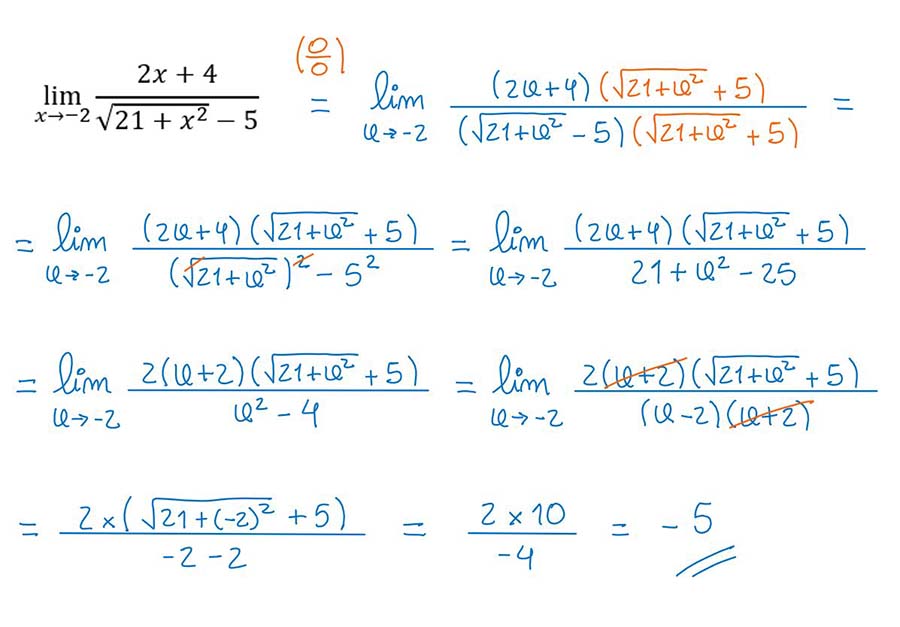 lim x→-2 (2x + 4)/(√(21 + x²) − 5) (0/0) = lim x→-2 ((2x+4)(√(21+x²) + 5))/((√(21+x²) − 5)(√(21+x²) + 5)) =
= lim x→-2 ((2x+4)(√(21+x²) + 5))/((√(21+x²))² − 5²) = lim x→-2 ((2x+4)(√(21+x²) + 5))/(21 + x² − 25)
= lim x→-2 (2(x+2)(√(21+x²) + 5))/(x² − 4) = lim x→-2 (2(x+2)(√(21+x²) + 5))/((x−2)(x+2))
= (2×(√(21+(-2)²) + 5))/(-2 −2) = (2 × 10)/(-4) = −5